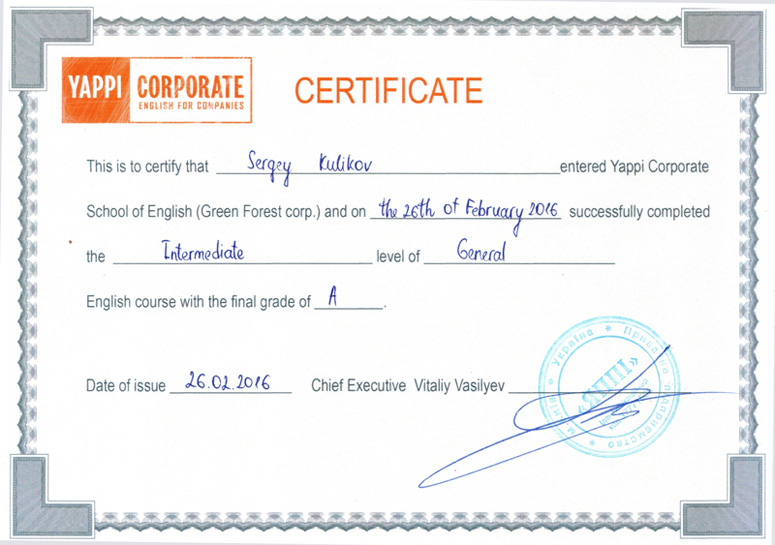 YAPPI CORPORATE
ENGLISH FOR COMPANIES
CERTIFICATE
This is to certify that Sergey Kulikov entered Yappi Corporate
School of English (Green Forest corp.) and on the 26th of February 2016 successfully completed
the Intermediate level of General
English course with the final grade of A.
Date of issue 26.02.2016 Chief Executive Vitaliy Vasilyev
Україна * Приватне підприємство *
«ЯППІ»